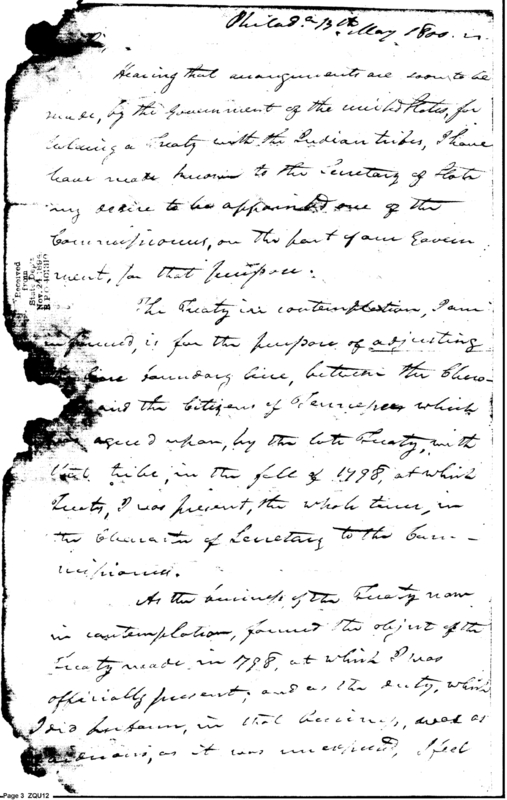 Philad.a 13th May 1800.
Sir,
Hearing that arrangements are soon to be
made, by the Government of the united States, for
holding a Treaty with the Indian tribes, I have
made known to the Secretary of State
my desire to be appointed one of the
Commissioners, on the part of our Govern
ment, for that purpose.
Received
from
State Dept.
The Treaty in contemplation, I am
informed, is for the purpose of adjusting
boundary line, between the Chero-
and the Citizens of Tennessee which
agreed upon, by the late Treaty, with
that tribe, in the fall of 1798, at which
Treaty, I was present, the whole time, in
the Character of Secretary to the Com-
missioners.
As the business of the Treaty now
in contemplation, formed the object of the
Treaty made in 1798, at which I was
officially present; and as the duty, which
I did perform, in that business, was as
arduous, as it was unexpected, I feel
Page 3 ZQU12